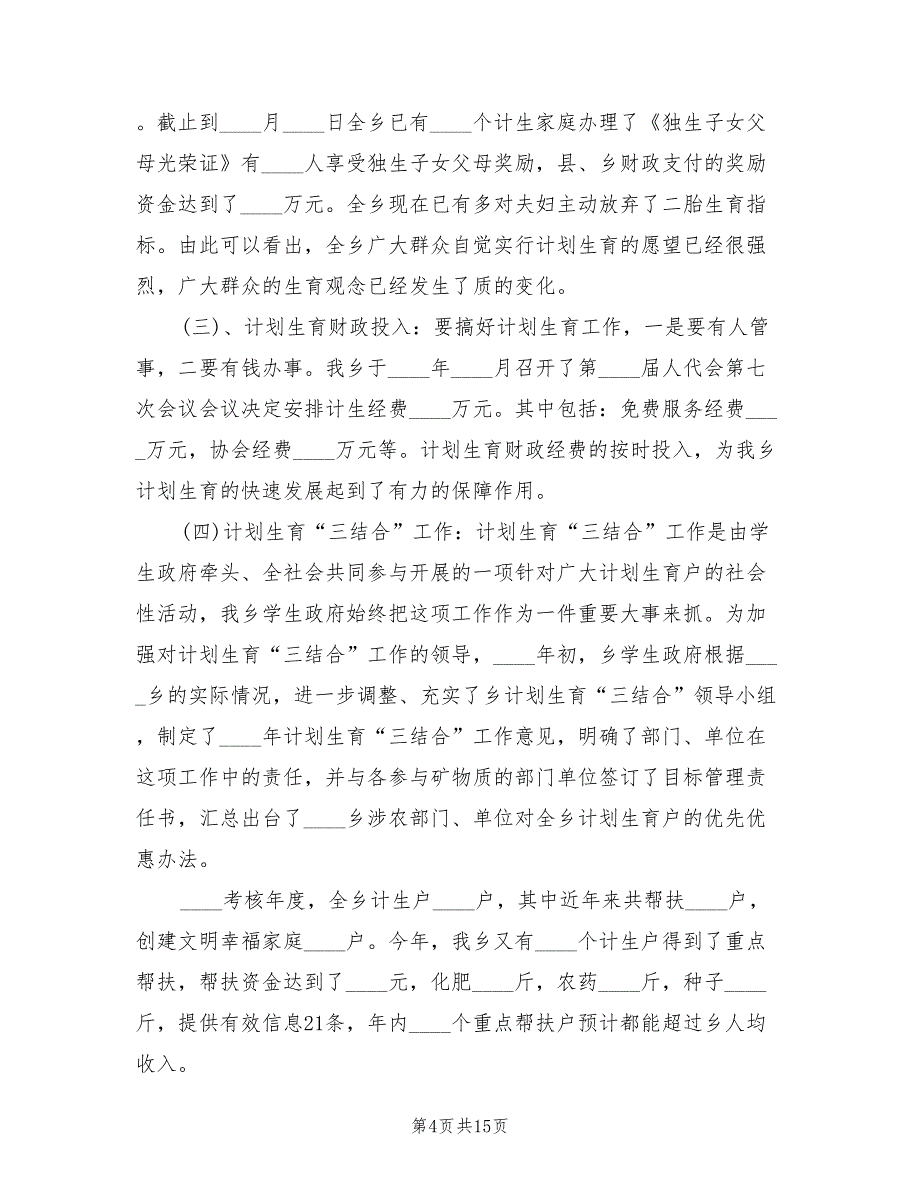 。截止到____月____日全乡已有____个计生家庭办理了《独生子女父
母光荣证》有____人享受独生子女父母奖励，县、乡财政支付的奖励
资金达到了____万元。全乡现在已有多对夫妇主动放弃了二胎生育指
标。由此可以看出，全乡广大群众自觉实行计划生育的愿望已经很强
烈，广大群众的生育观念已经发生了质的变化。
(三)、计划生育财政投入：要搞好计划生育工作，一是要有人管
事，二要有钱办事。我乡于____年____月召开了第____届人代会第七
次会议会议决定安排计生经费____万元。其中包括：免费服务经费___
_万元，协会经费____万元等。计划生育财政经费的按时投入，为我乡
计划生育的快速发展起到了有力的保障作用。
(四)计划生育“三结合”工作：计划生育“三结合”工作是由学
生政府牵头、全社会共同参与开展的一项针对广大计划生育户的社会
性活动，我乡学生政府始终把这项工作作为一件重要大事来抓。为加
强对计划生育“三结合”工作的领导，____年初，乡学生政府根据___
_乡的实际情况，进一步调整、充实了乡计划生育“三结合”领导小组
，制定了____年计划生育“三结合”工作意见，明确了部门、单位在
这项工作中的责任，并与各参与矿物质的部门单位签订了目标管理责
任书，汇总出台了____乡涉农部门、单位对全乡计划生育户的优先优
惠办法。
____考核年度，全乡计生户____户，其中近年来共帮扶____户，
创建文明幸福家庭____户。今年，我乡又有____个计生户得到了重点
帮扶，帮扶资金达到了____元，化肥____斤，农药____斤，种子____
斤，提供有效信息21条，年内____个重点帮扶户预计都能超过乡人均
收入。
第4页共15页